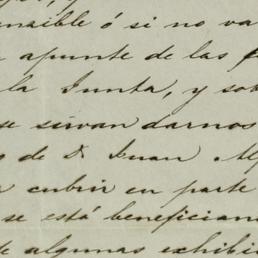 ensible ó si no va
apunte de las
la Junta, y sob
se sirvan darnos
de D. Juan
cubrir en parte
se está benefician
de algunas exhibi